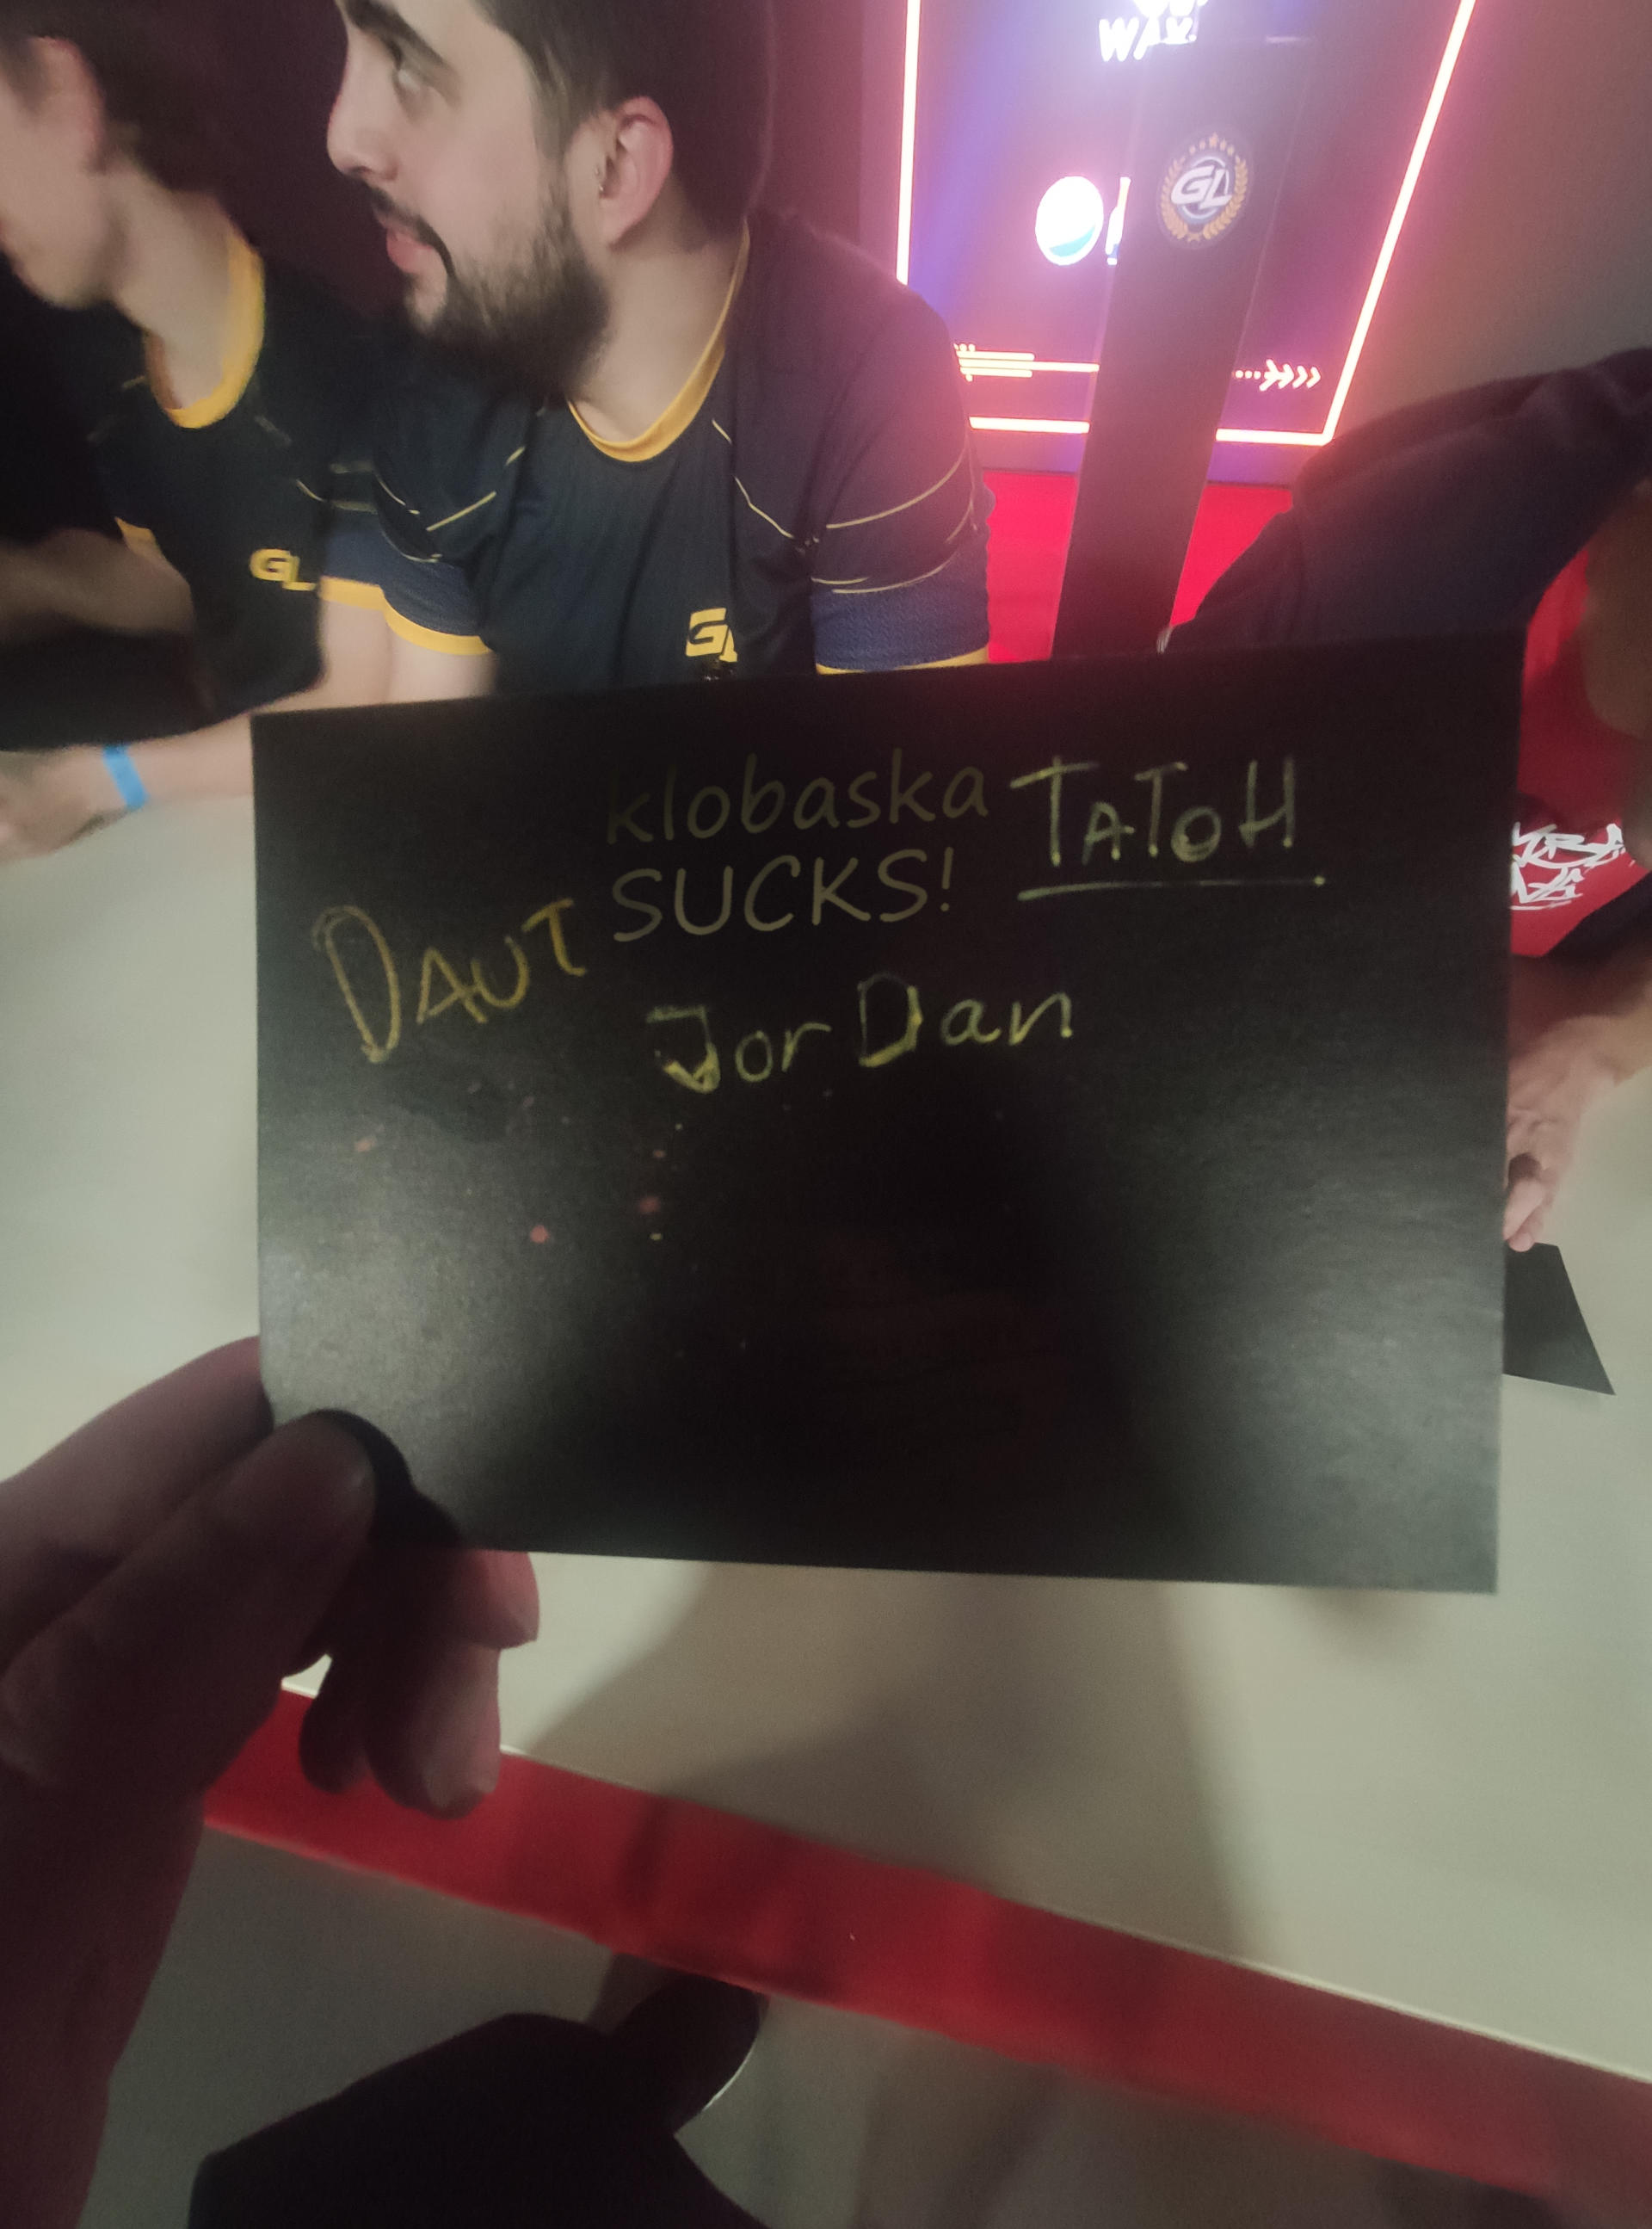 WAY
GL
GL
GL
klobaska
SUCKS!
TATOH
DAUT
JorDan